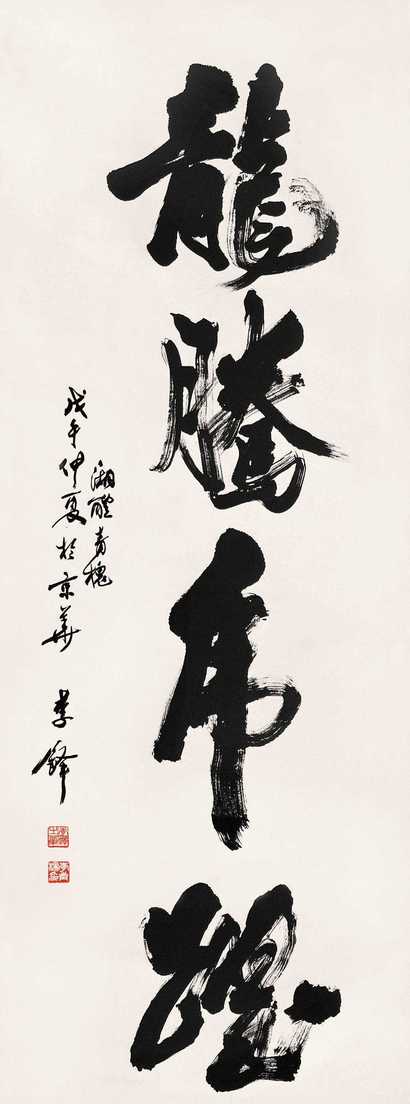 龍騰虎躍
湘醴青槐
戊午仲夏於京華 李鐸